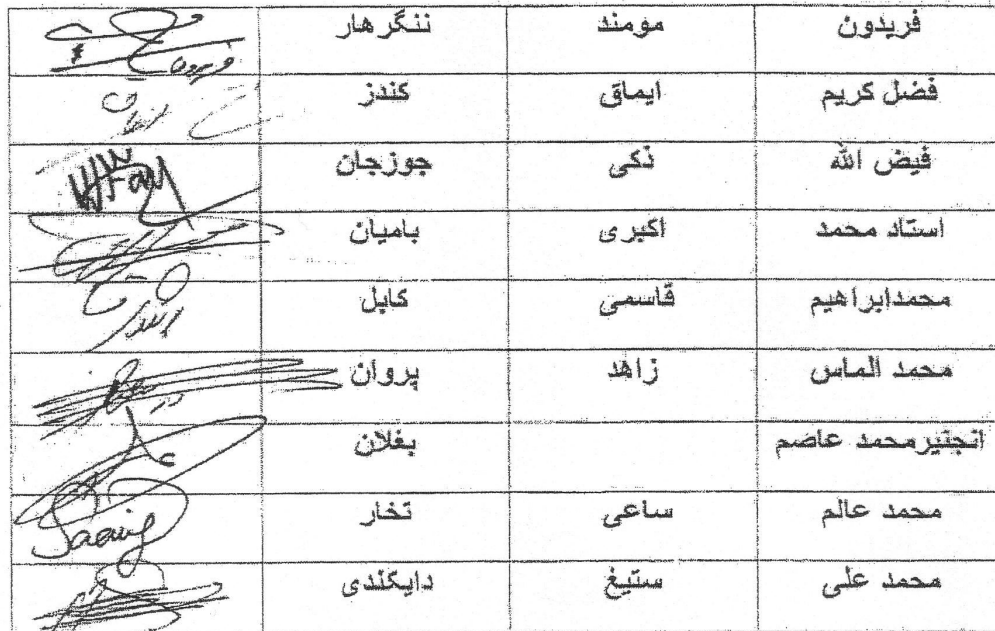 فریدون مومند ننگرهار
فضل کریم ایماق کندز
فیض الله ذکی جوزجان
استاد محمد اکبری بامیان
محمدابراهیم قاسمی کابل
محمد الماس زاهد پروان
انجنیرمحمد عاصم بغلان
محمد عالم ساعی تخار
محمد علی ستیغ دایکندی